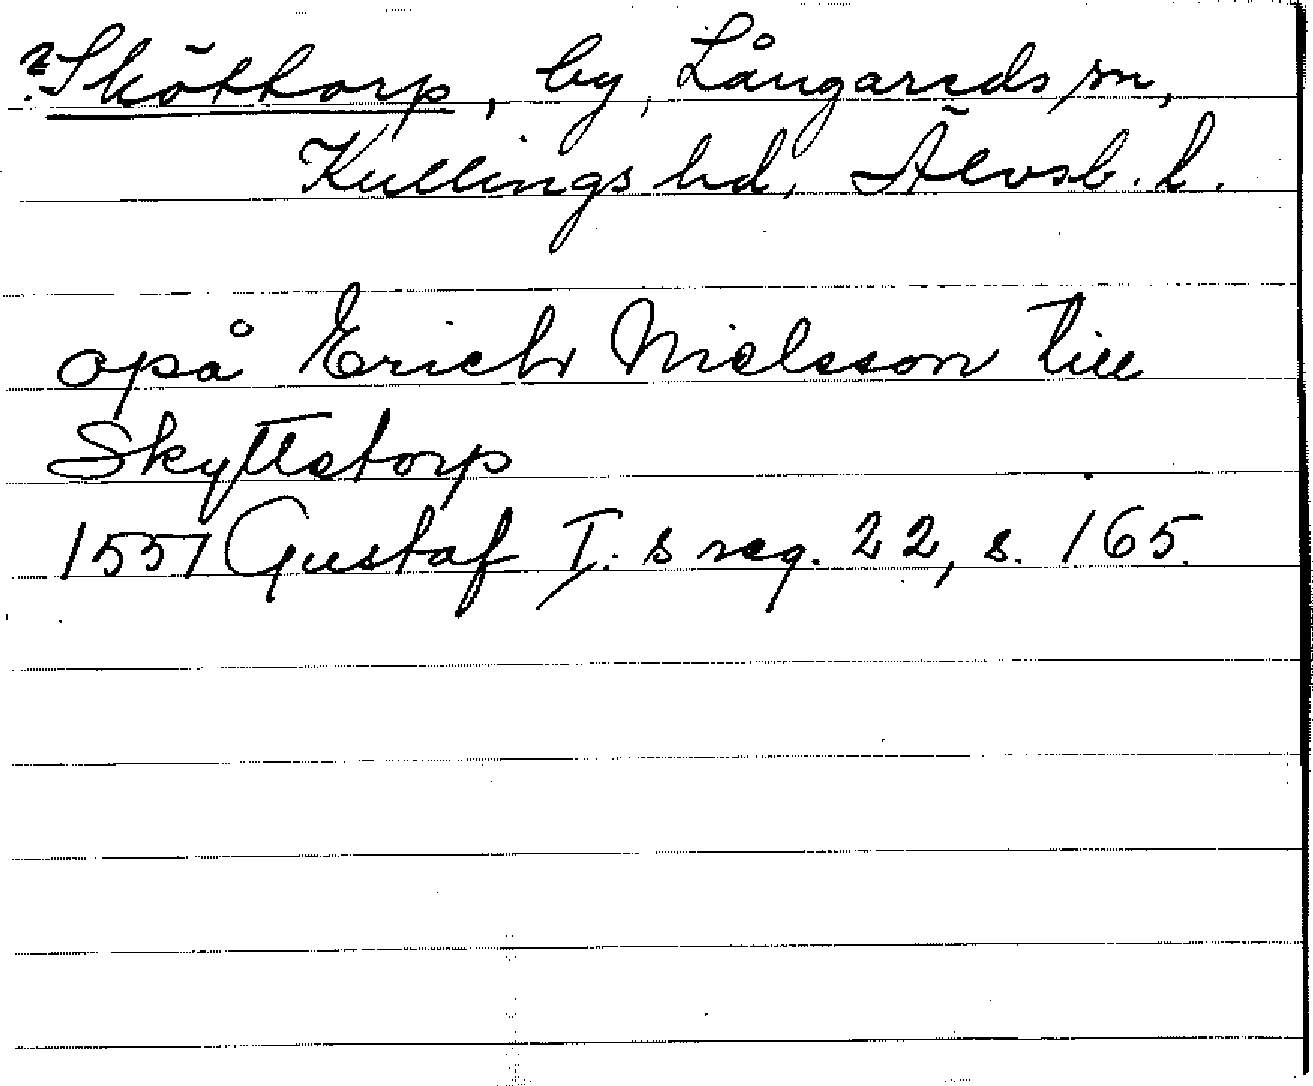 ? Sköttorp, by, Långareds sn,
Kullings hd, Älvsb. l.
opå Erich Nielsson till
Skyttetorp
1551 Gustaf I:s reg. 22, s. 165.